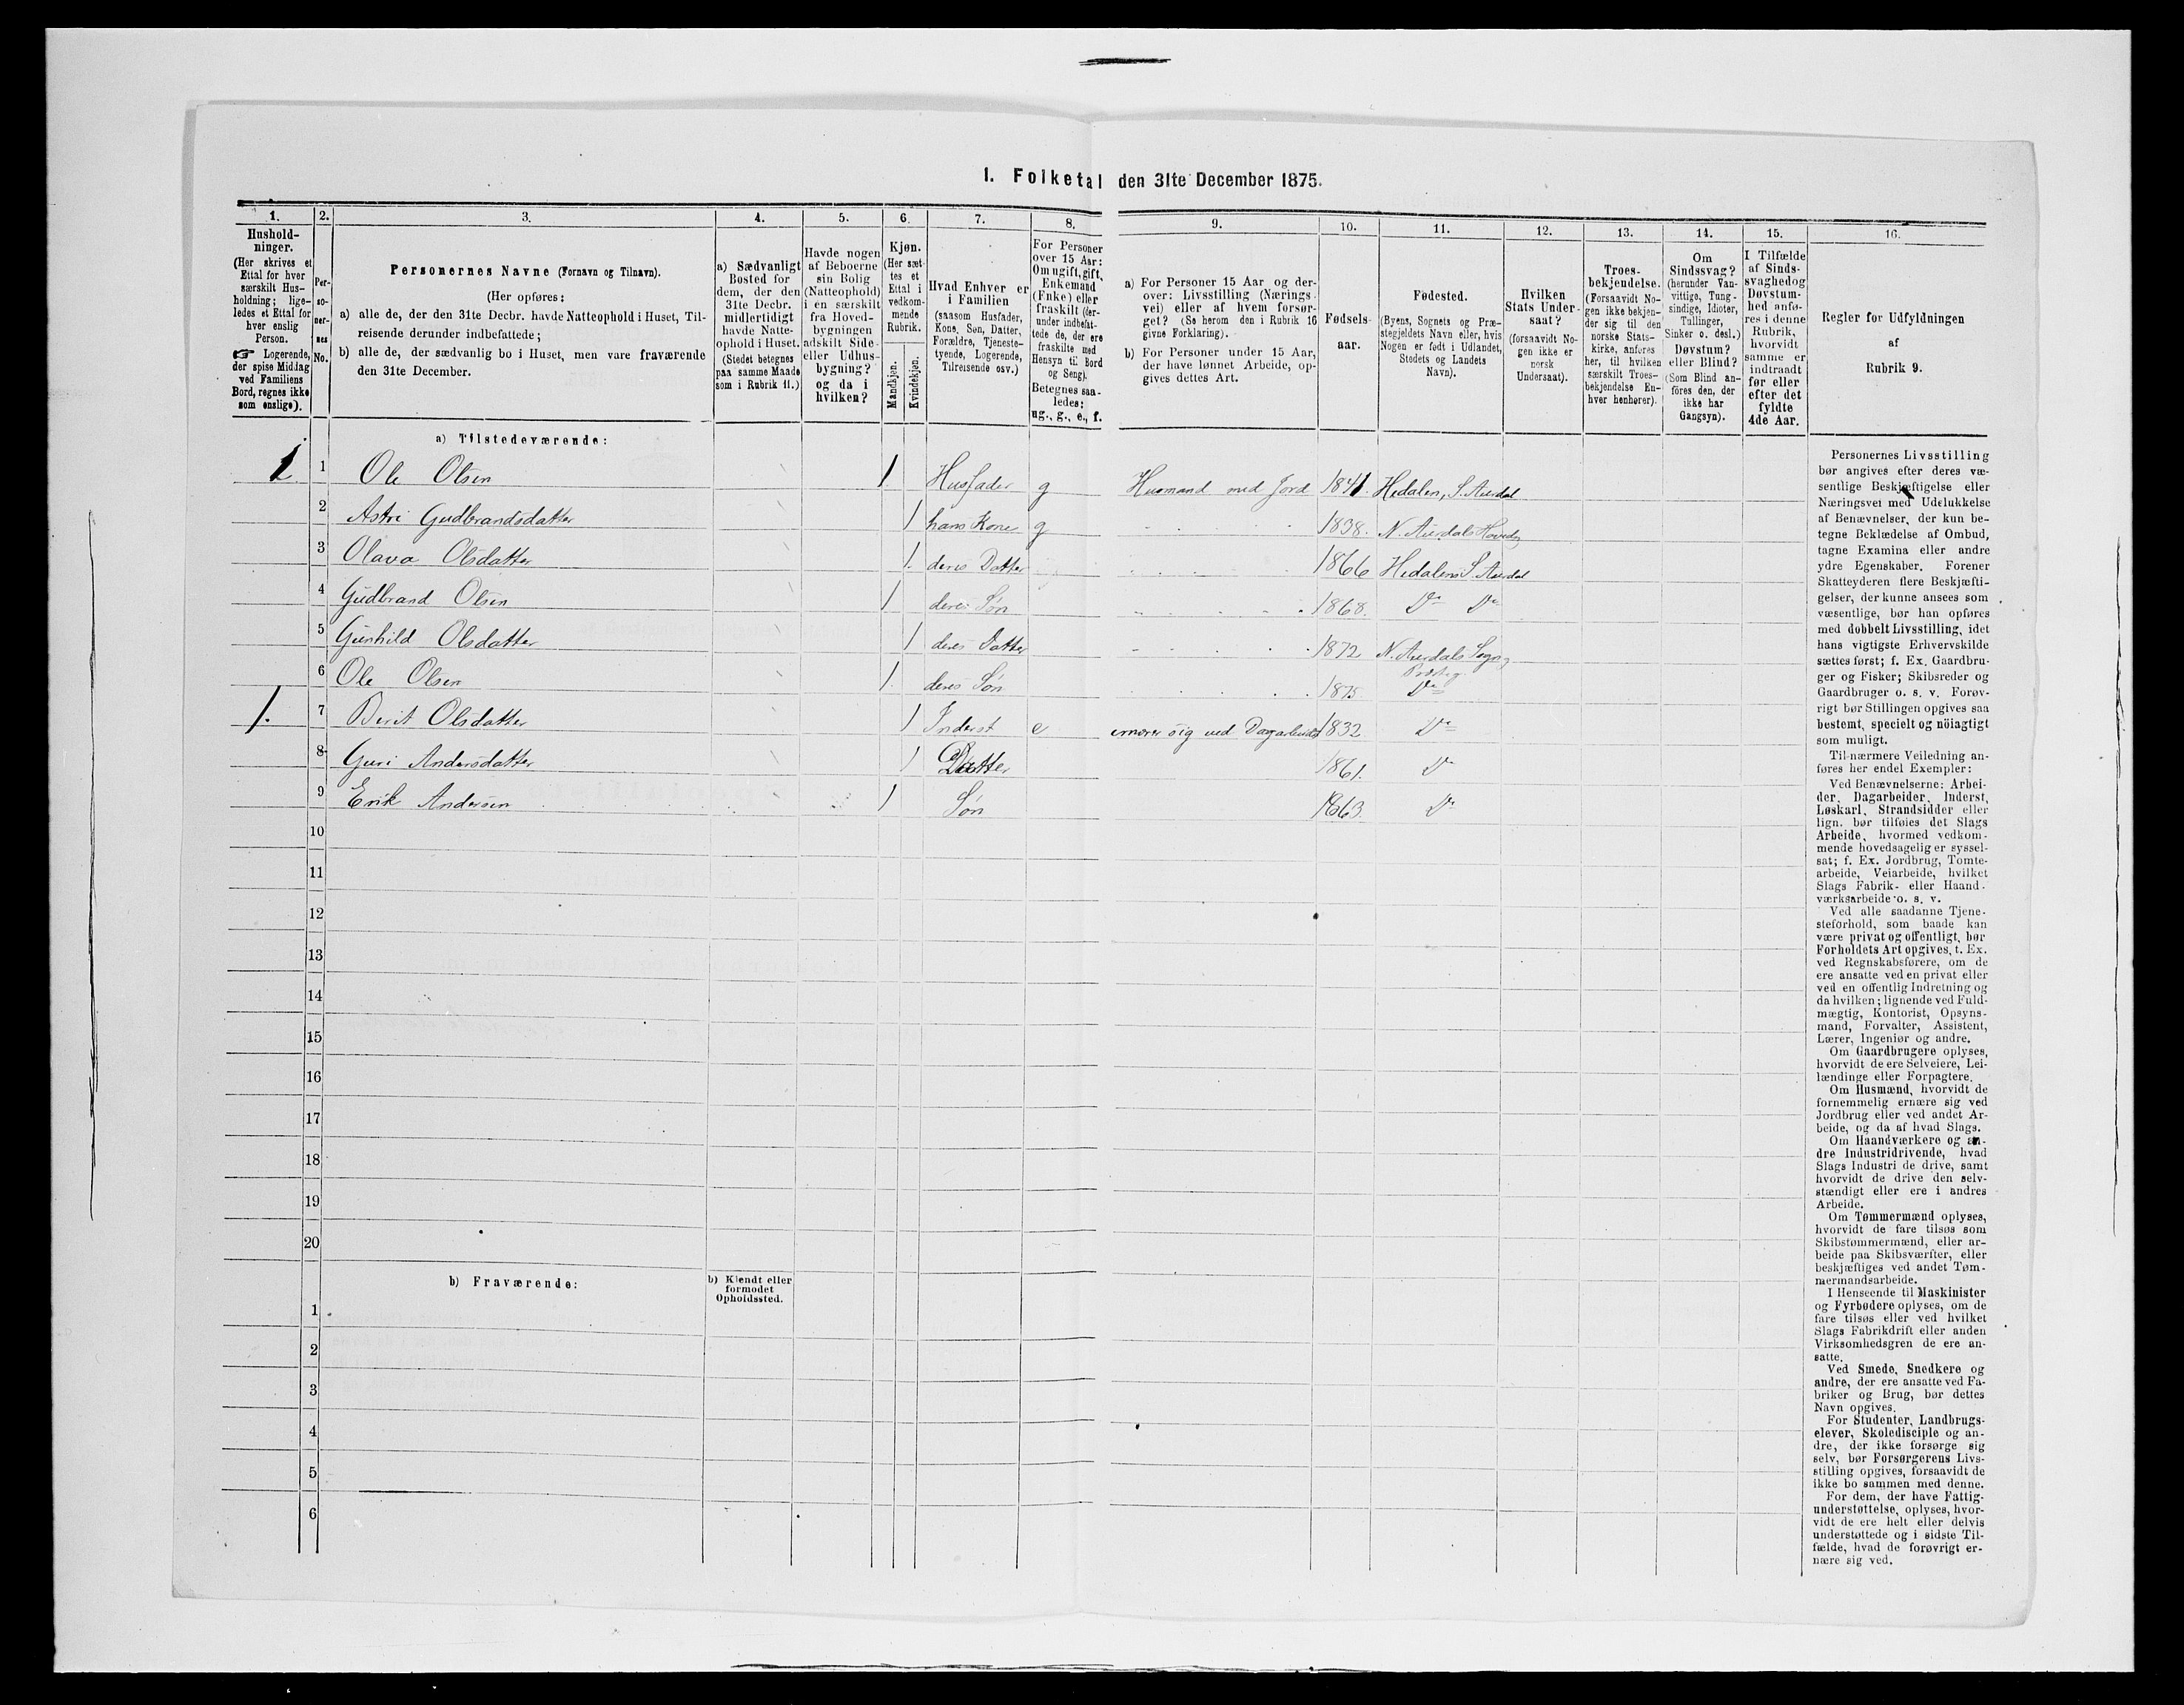 1. Folketal den 31te December 1875.
1. 2. 3. 4. 5. 6. 7. 8. 9. 10. 11. 12. 13. 14. 15. 16.
Hushold-
ninger.
(Her skrives et
Ettal for hver
særskilt Hus-
holdning; lige-
ledes et Ettal for
hver enslig
Person.
☞ Logerende,
der spise Middag
ved Familiens
Bord, regnes ikke
som enslige).
Per-
so-
ner-
nes
No.
Personernes Navne (Fornavn og Tilnavn).
(Her opføres:
a) alle de, der den 31te Decbr. havde Natteophold i Huset, Til-
reisende derunder indbefattede;
b) alle de, der sædvanlig bo i Huset, men vare fraværende
den 31te December.
a) Sædvanligt
Bosted for
dem, der den
31te Decbr.
midlertidigt
havde Natte-
ophold i Huset.
(Stedet betegnes
paa samme Maade
som i Rubrik 11.)
Havde nogen
af Beboerne
sin Bolig
(Natteophold)
i en særskilt
fra Hoved-
bygningen
adskilt Side-
eller Udhus-
bygning?
og da i
hvilken?
Kjøn.
(Her sæt-
tes et
Ettal i
vedkom-
mende
Rubrik.
Mandkjøn.
Kvindekjøn.
Hvad Enhver er
i Familien
(saasom Husfader,
Kone, Søn, Datter,
Forældre, Tjeneste-
tyende, Logerende,
Tilreisende osv.)
For Personer
over 15 Aar:
Om ugift, gift,
Enkemand
(Enke) eller
fraskilt (der-
under indbefat-
tede de, der ere
fraskilte med
Hensyn til Bord
og Seng).
Betegnes saa-
ledes:
ug., g., e., f.
a) For Personer 15 Aar og der-
over: Livsstilling (Nærings-
vei) eller af hvem forsør-
get? (Se herom den i Rubrik 16
givne Forklaring).
b) For Personer under 15 Aar,
der have lønnet Arbeide, op-
gives dettes Art.
Fødsels-
aar.
Fødested.
(Byens, Sognets og Præ-
stegjeldets Navn eller, hvis
Nogen er født i Udlandet,
Stedets og Landets
Navn).
Hvilken
Stats Under-
saat?
(forsaavidt No-
gen ikke er
norsk
Undersaat).
Troes-
bekjendelse.
(Forsaavidt No-
gen ikke bekjen-
der sig til den
norske Stats-
kirke, anføres
her, til hvilken
særskilt Troes-
bekjendelse En-
hver henhører).
Om
Sindssvag?
(herunder Van-
vittige, Tung-
sindige, Idioter,
Tullinger,
Sinker o. desl.)
Døvstum?
eller Blind?
(Som Blind an-
føres den, der
ikke har
Gangsyn).
I Tilfælde
af Sinds-
svaghed og
Døvstum-
hed anfø-
res i denne
Rubrik,
hvorvidt
samme er
indtraadt
før eller
efter det
fyldte
4de Aar.
Regler for Udfyldningen
af
Rubrik 9.
a) Tilstedeværende:
1 1 Ole Olsen 1 Husfader g Husmand med Jord 1841. Hedalen, S. Aurdal
2 Astri Gudbrandsdatter 1 hans Kone g 1838. N. Aurdals Hoveds
3 Olava Olsdatter 1. deres Datter 1866 Hedalens S. Aurdal
4 Gudbrand Olsen 1 deres Søn 1868. Do Do
5 Gunhild Olsdatter 1 deres Datter 1872 N. Aurdals Sogn
Præsteg.
6 Ole Olsen 1. deres Søn 1875 Do
1. 7 Berit Olsdatter 1 Inderst e ernærer sig ved Dagarbeide 1832 Do
8 Guri Andersdatter 1 Datter 1861. Do
9 Erik Andersen 1 Søn 1863. Do
10
11
12
13
14
15
16
17
18
19
20
b) Fraværende:
b) Kjendt eller
formodet
Opholdssted.
1
2
3
4
5
6
Personernes Livsstilling
bør angives efter deres væ-
sentlige Beskjæftigelse eller
Næringsvei med Udelukkelse
af Benævnelser, der kun be-
tegne Beklædelse af Ombud,
tagne Examina eller andre
ydre Egenskaber. Forener
Skatteyderen flere Beskjæfti-
gelser, der kunne ansees som
væsentlige, bør han opføres
med dobbelt Livsstilling, idet
hans vigtigste Erhvervskilde
sættes først; f. Ex. Gaardbru-
ger og Fisker; Skibsreder og
Gaardbruger o. s. v. Forøv-
rigt bør Stillingen opgives saa
bestemt, specielt og nöiagtigt
som muligt.
Til nærmere Veiledning an-
føres her endel Exempler:
Ved Benævnelserne: Arbei-
der, Dagarbeider, Inderst,
Løskarl, Strandsidder eller
lign. bør tilføies det Slags
Arbeide, hvormed vedkom-
mende hovedsagelig er syssel-
sat; f. Ex. Jordbrug, Tomte-
arbeide, Veiarbeide, hvilket
Slags Fabrik- eller Haand-
værksarbeide o. s. v.
Ved alle saadanne Tjene-
steforhold, som baade kan
være privat og offentligt, bør
Forholdets Art opgives, t. Ex.
ved Regnskabsførere, om de
ere ansatte ved en privat eller
ved en offentlig Indretning og
da hvilken; lignende ved Fuld-
mægtig, Kontorist, Opsyns-
mand, Forvalter, Assistent,
Lærer, Ingeniør og andre.
Om Gaardbrugere oplyses,
hvorvidt de ere Selveiere, Lei-
lændinge eller Forpagtere.
Om Husmænd, hvorvidt de
fornemmelig ernære sig ved
Jordbrug eller ved andet Ar-
beide, og da af hvad Slags.
Om Haandværkere og an-
dre Industridrivende, hvad
Slags Industri de drive, samt
hvorvidt de drive den selv-
stændigt eller ere i andres
Arbeide.
Om Tømmermænd oplyses,
hvorvidt de fare tilsøs som
Skibstømmermænd, eller ar-
beide paa Skibsværfter, eller
beskjæftiges ved andet Tøm-
mermandsarbeide.
I Henseende til Maskinister
og Fyrbødere oplyses, om de
fare tilsøs eller ved hvilket
Slags Fabrikdrift eller anden
Virksomhedsgren de ere an-
satte.
Ved Smede, Snedkere og
andre, der ere ansatte ved Fa-
briker og Brug, bør dettes
Navn opgives.
For Studenter, Landbrugs-
elever, Skoledisciple og an-
dre, der ikke forsørge sig
selv, bør Forsørgerens Livs-
stilling opgives, forsaavidt de
ikke bo sammen med denne.
For dem, der have Fattig-
understøttelse, oplyses, hvor-
vidt de ere helt eller delvis
understøttede og i sidste Til-
fælde, hvad de forøvrigt er-
nære sig ved.